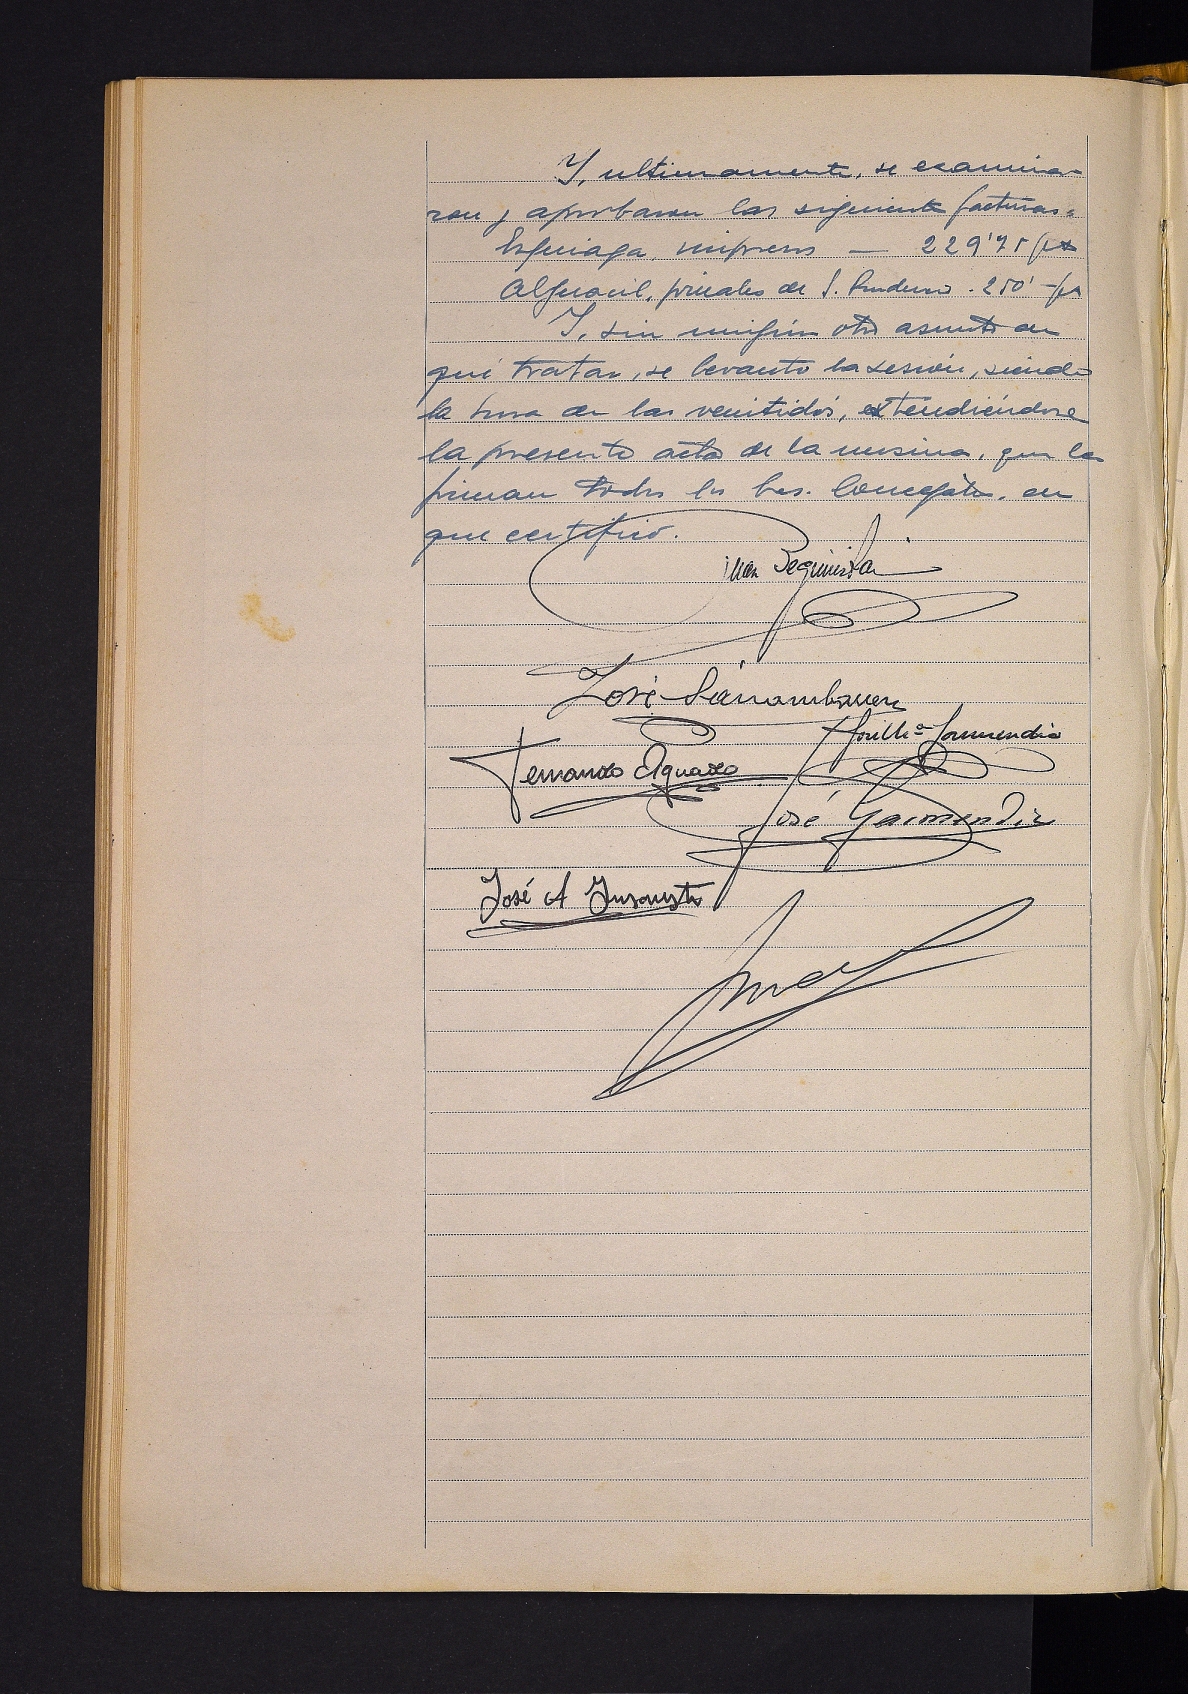 Y, ultimamente, se examina-
ron y aprobaron las siguiente facturas=
impresos — 229'75 pts
Alguacil, jornales de S. Prudencio . 250' - pts
Y, sin ningún otro asunto de
qué tratar, se levanto la sesión, siendo
la hora de las veintidós, extendiéndose
la presente acta de la misma, que la
firman todos los Sres. Concejales, de
que certifico.
Juan Beguiristain
José
Fernando Aguado
José Garmendia
José A